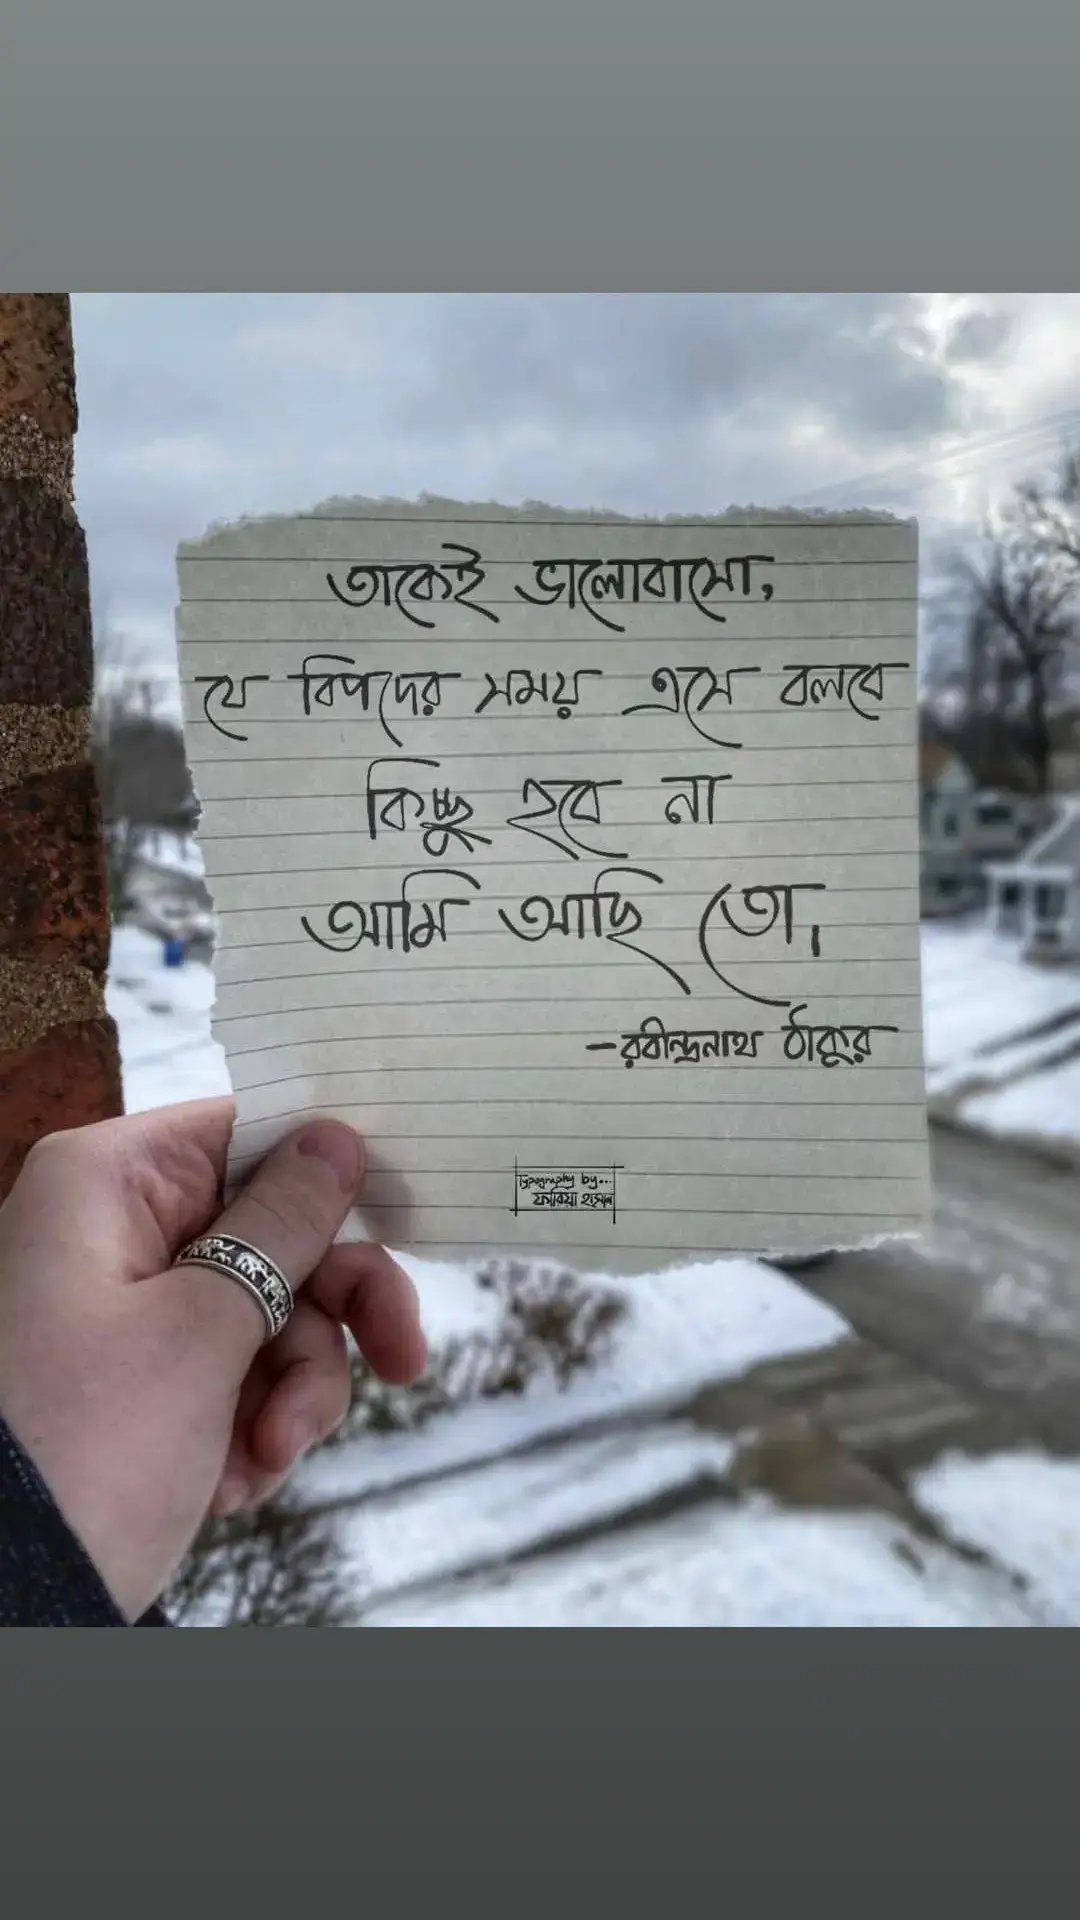 তাকেই ভালোবাসো,
যে বিপদের সময় এসে বলবে
কিচ্ছু হবে না
আমি আছি তো,
-রবীন্দ্রনাথ ঠাকুর
Typography by...
ফারিয়া হাসান